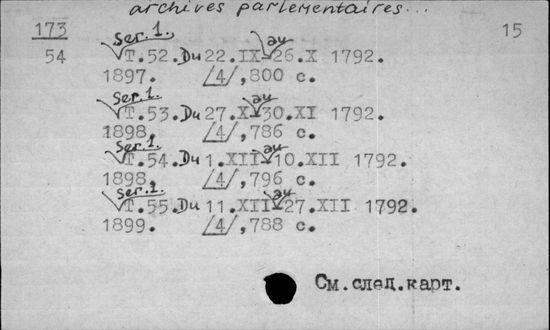 archives parlementaires...
173
54
15
Ser. 1. au
T.52. Du 22.IX-26.X 1792.
1897. /4/,800 с.
Ser. 1 au
Т.53. Du 27.X-30.XI 1792.
1898. /4/,786 с.
Ser. 1. au
Т.54. Du 1.XII-10.XII 1792.
1898. /4/,796 с.
Ser. 1. au
Т.55. Du 11.XII-27.XII 1792.
1899. /4/,788 с.
См.след.карт.